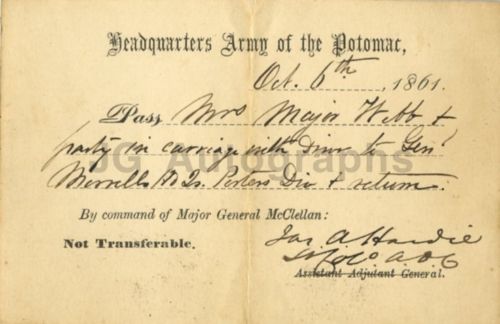 Headquarters Army of the Potomac,
Oct. 6th, 1861.
Pass Mrs Major Webb &
party in carriage with driver to Genl
Morrells Hd Qs. Porters Div & return.
JG Autographs
By command of Major General McClellan:
Not Transferable.
Jas A Hardie
Lt Col A.D.C
Assistant Adjutant General.